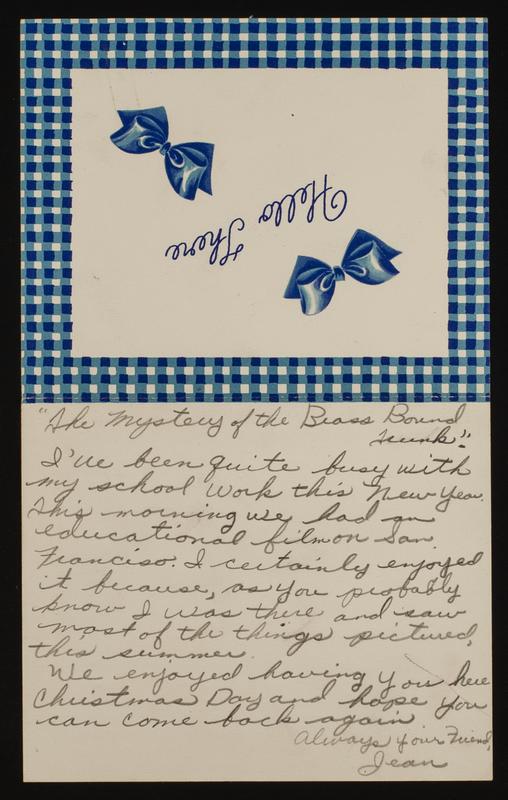 Hello There
"The Mystery of the Brass Bound
Trunk."
I've been quite busy with
my school work this New Year.
This morning we had an
educational film on San
Francisco. I certainly enjoyed
it because, as you probably
know I was there and saw
most of the things pictured,
this summer.
We enjoyed having you here
Christmas Day and hope you
can come back again
Always your Friend,
Jean